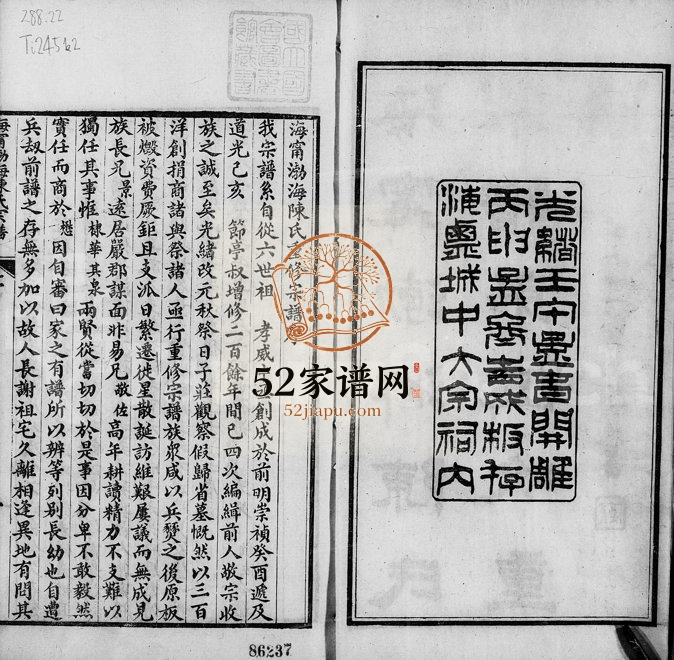 光緒壬午孟春開雕
丙申孟冬葳成板存
海鹽城中大宗祠內
288.22
T:245b2
國立北
海甯渤海陳氏重修宗譜
我宗譜系自從六世祖 孝威 創成於前明崇禎癸酉遞及
道光己亥 節亭叔增修二百餘年間已四次編緝前人敬宗收
族之誠至矣光緒改元秋祭日子莊觀察假歸省墓慨然以三百
洋創捐商諸與祭諸人亟行重修宗譜族眾咸以兵燹之後原板
被燬資費厥鉅且支派日繁遷徙星散誕訪維艱屢議而無成見
族長兄景 遠居嚴郡謀面非易兄敬佐高年耕讀精力不支難以
獨任其事惟棣華其泉兩賢從當切切於是事因分卑不敢毅然
實任而商於懋因自審曰家之有譜所以辨等列別長幼也自遭
兵劫前譜之存無多加以故人長謝祖宅久離相逢異地有問其
海甯渤海陳氏宗譜
52家谱网
52jiapu.com
86237